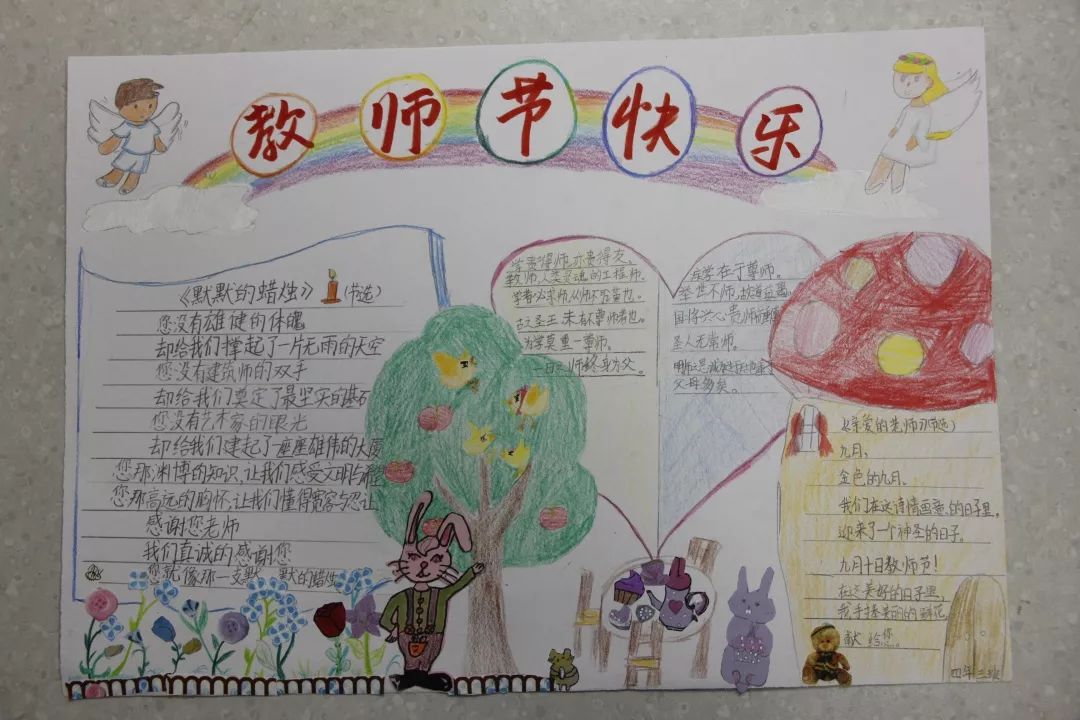 教师节快乐
《默默的蜡烛》(节选)
您没有雄健的体魄
却给我们撑起了一片无雨的天空
您没有建筑师的双手
却给我们奠定了最坚实的基石
您没有艺术家的眼光
却给我们建起了一座座雄伟的大厦
您那渊博的知识,让我们感受文明与
您那高远的胸怀,让我们懂得宽容与忍让
感谢您老师
我们真诚的感谢您
您就像那一支默 默的蜡烛
学贵得师,亦贵得友。
教师,人类灵魂的工程师。
学者必求师,从师不可不谨也。
古之圣王,未有不尊师者也。
为学莫重于尊师。
一日之师终身为父。
兵学在于尊师。
举世不师,故道益离。
国将兴,必贵师而重傅
圣人无常师。
父母多矣。
《亲爱的老师》(节选)
九月,
金色的九月。
我们在这诗情画意的日子里,
迎来了一个神圣的日子。
九月十日教师节!
在这美好的日子里,
我手捧美丽的鲜花
献给您。
四年三班